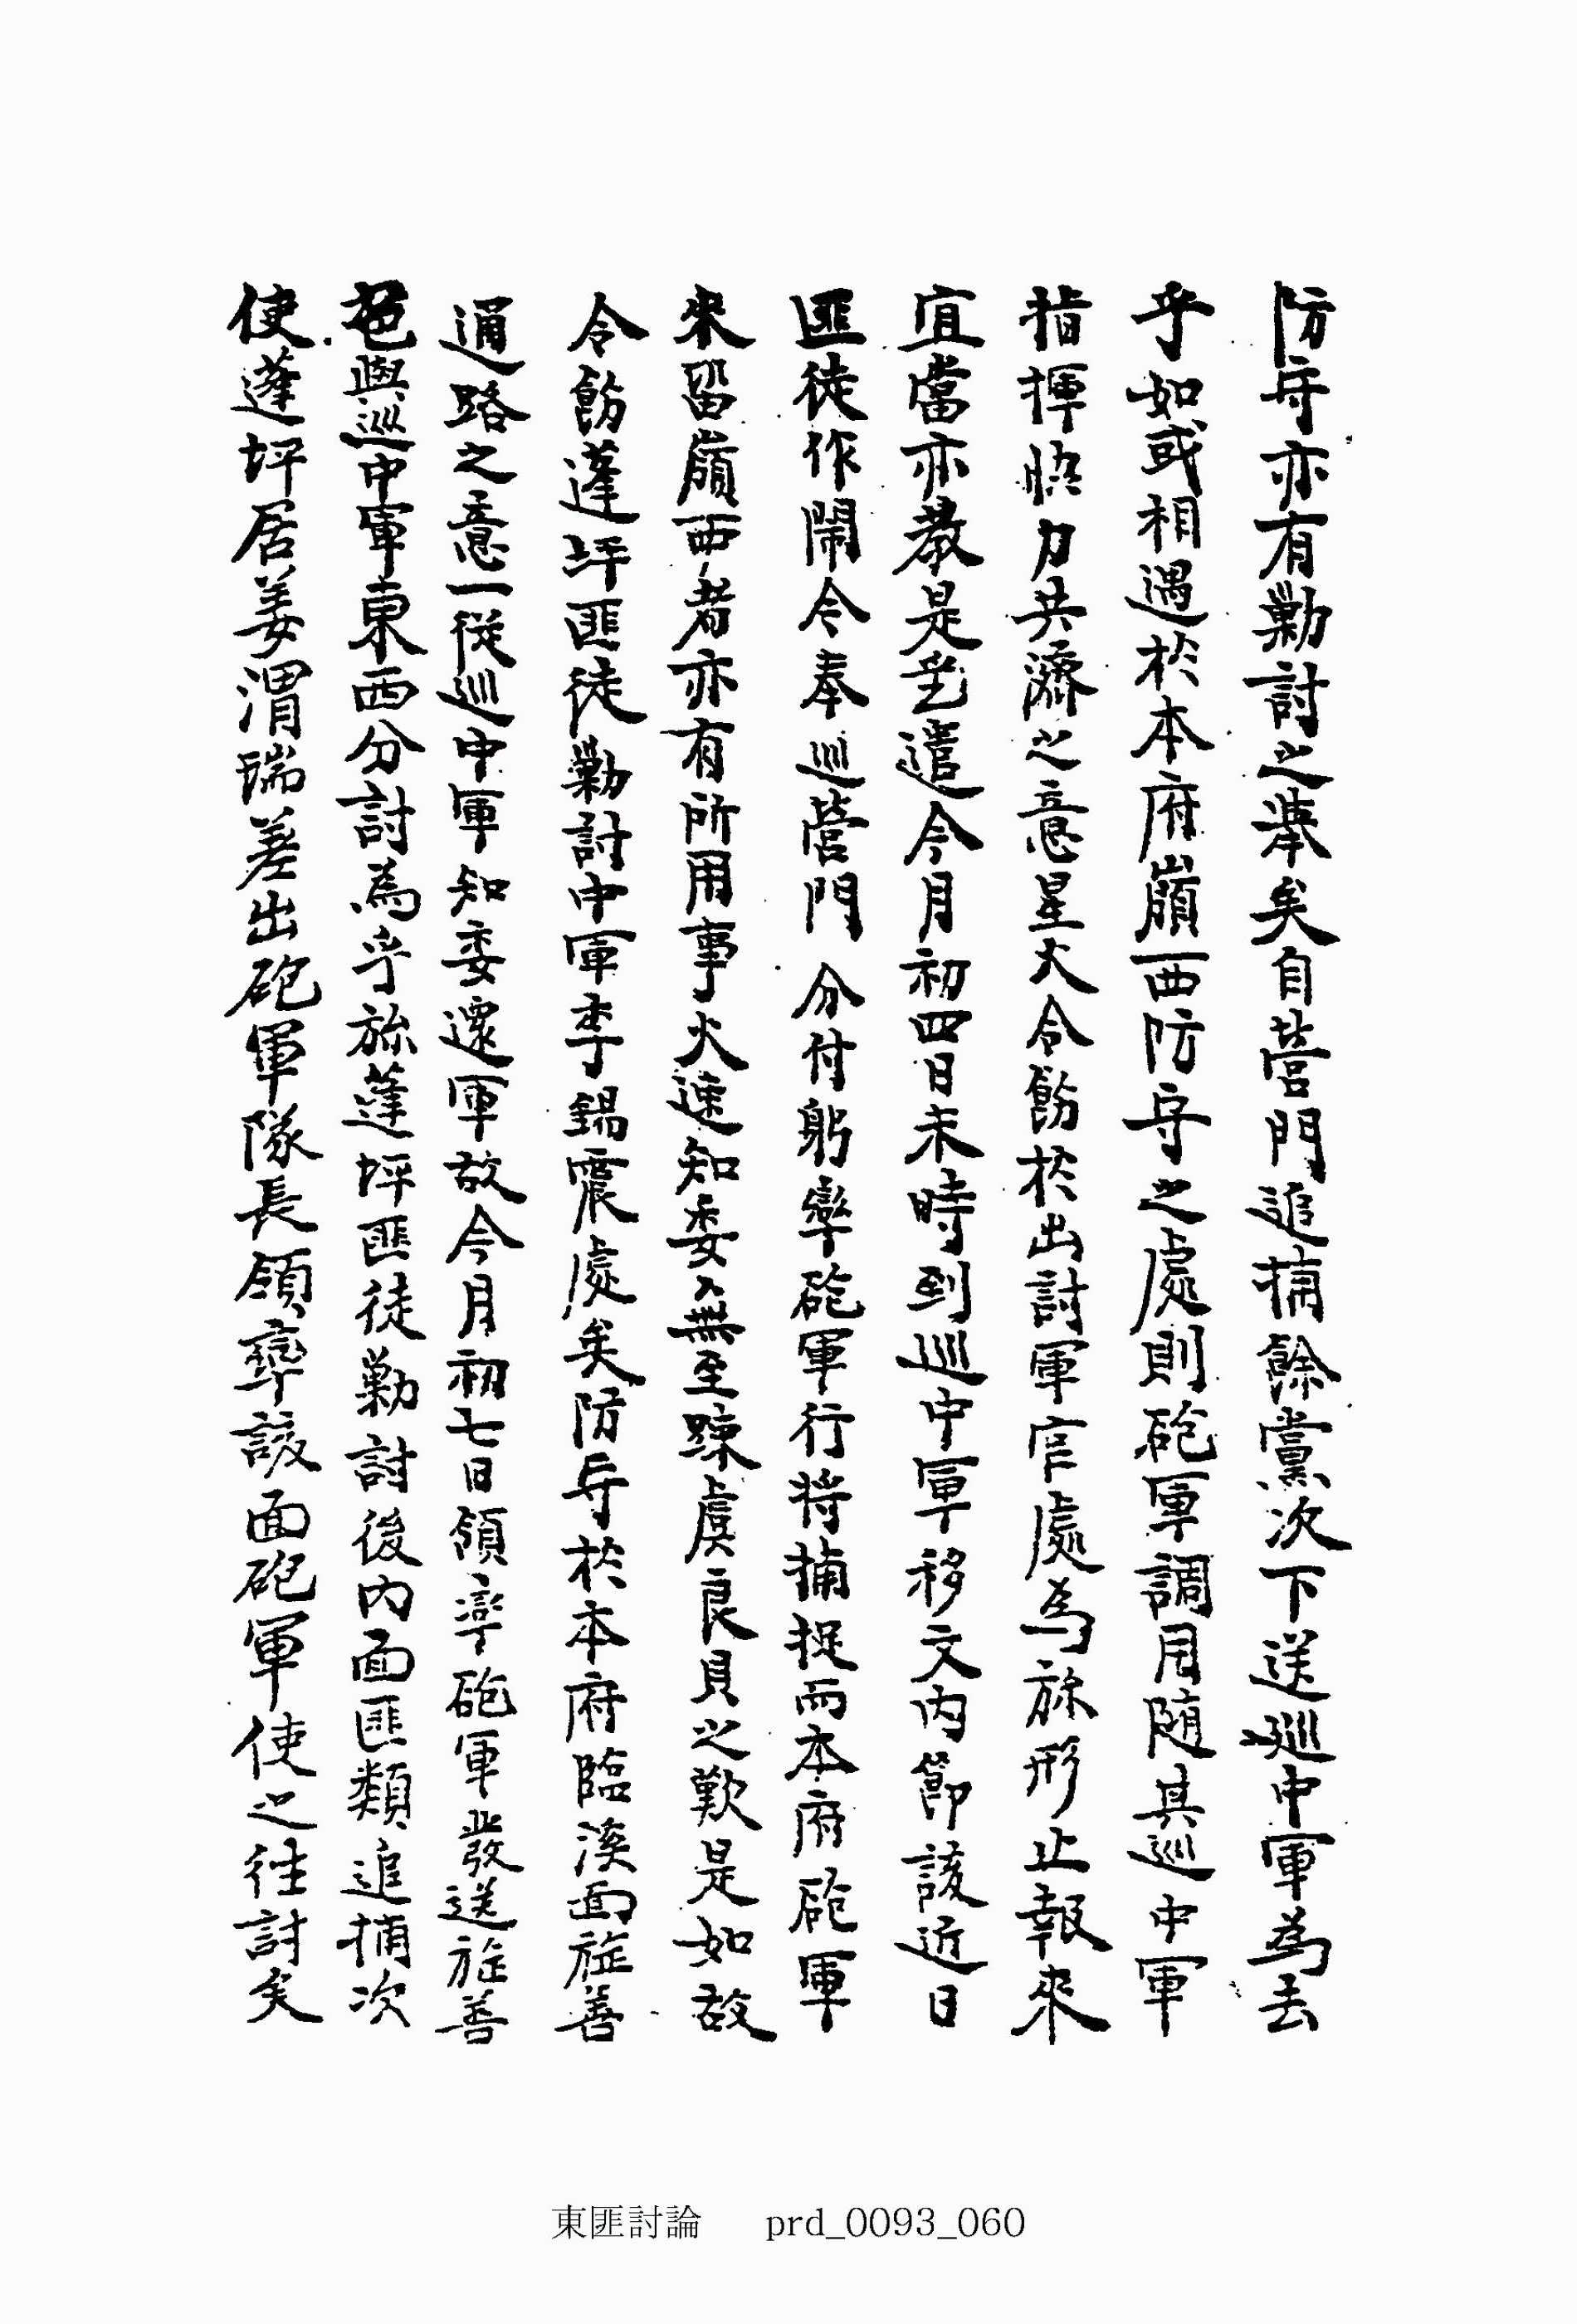 防守亦有勦討之擧矣自營門追捕餘黨次下送巡中軍爲去
乎如或相遇於本府嶺西防守之處則砲軍調用随其巡中軍
指揮恊力共濟之意星火令飭於出討軍官處爲旀形止報來
宜當亦敎是乎遣今月初四日未時到巡中軍移文內節該近日
匪徒作鬧令奉巡營門 分付躬率砲軍行將捕捉而本府砲軍
來留嶺西者亦有所用事火速知委無至踈虞良貝之歎是如故
令飭蓬坪匪徒勦討中軍李錫震處矣防守於本府臨溪面旌善
通路之意一從巡中軍知委還軍故今月初七日領率砲軍發送旌善
邑與巡中軍東西分討爲乎旀蓬坪匪徒勦討後內面匪類追捕次
使蓬坪居姜渭瑞差出砲軍隊長領率該面砲軍使之往討矣
東匪討論 prd_0093_060